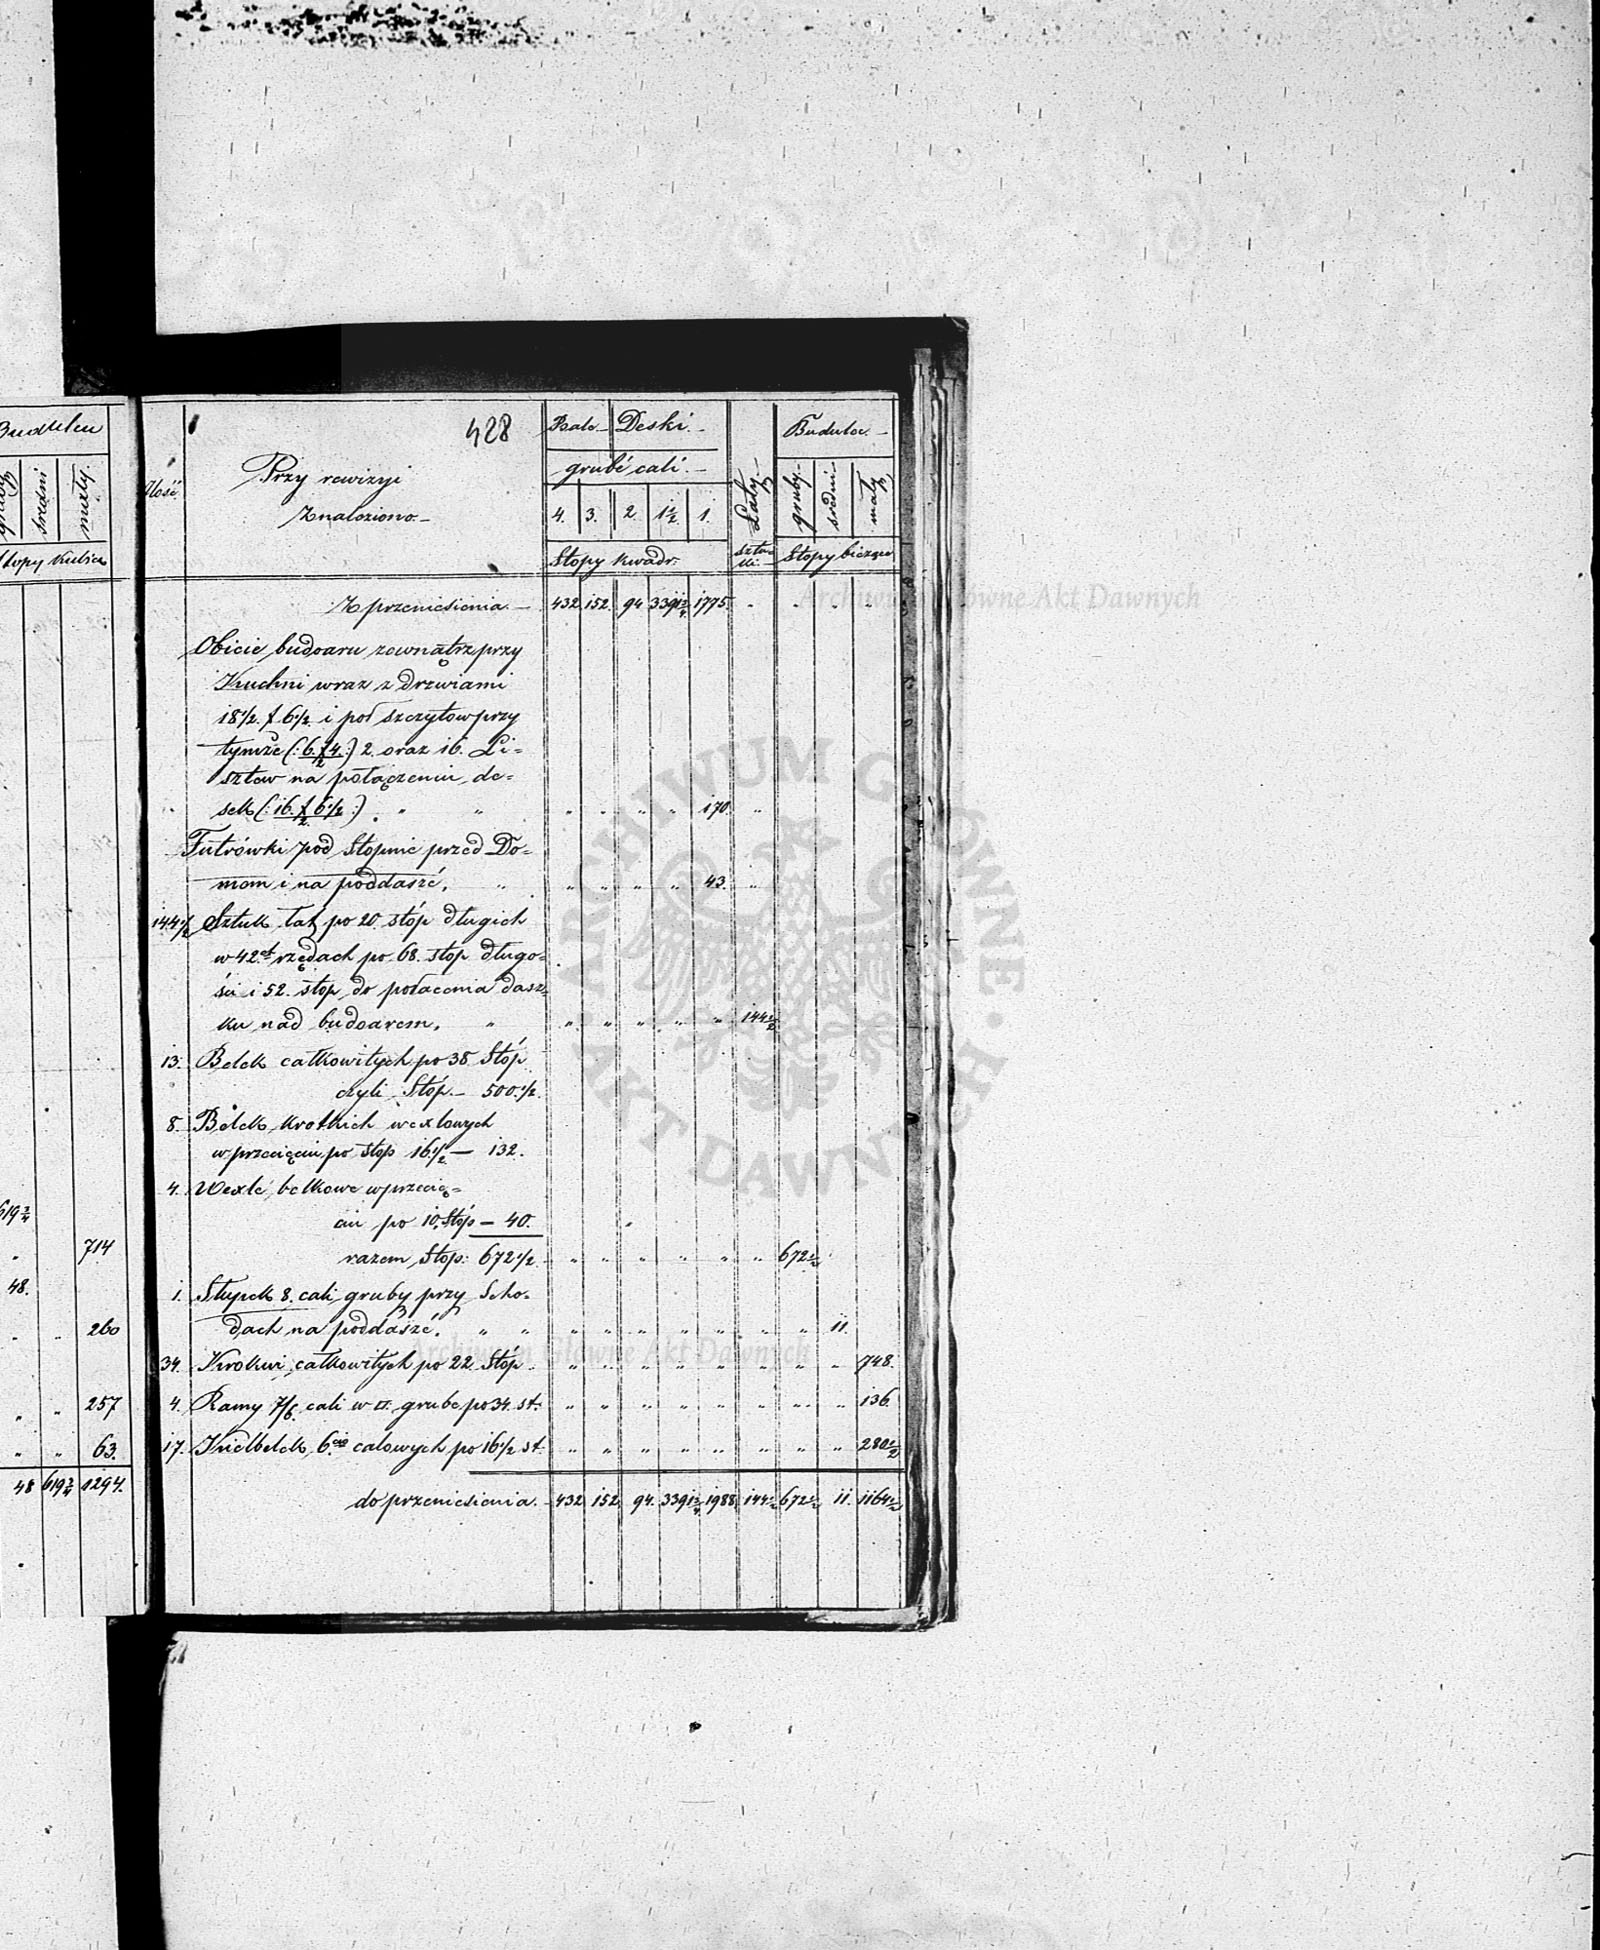 Budulcu
średni
małÿ
Stopy Kubicz
619 3/4
" 714
48.
" " 260
" " 257
" " 63.
48 619 3/4 1294.
428
Ilość
Przy rewizyi
Znaleziono.–
Bale.– Deski.–
grubé cali.–
4. 3. 2. 1 1/2 1.
Stopy kwadr.
Łaty.
sztu=
ki.–
Budulec.–
gruby.– średni.– mały
Stopy bieżące
Z przeniesienia.– 432. 152. 94 339 1 3/4 1775. " " " "
Obicie budoaru zewnątrz przy
Kuchni wraz z drzwiami
18 1/2 f 6 1/2 i pod szczytow przy
tymże (: 6 f 4 :) 2. oraz 16. Li=
 2
sztew na połączeniu de=
sek (: 16 f 6 1/2 :) " " " " " " 170. "
 2
Futrówki pod Stopnie przed Do=
mem i na poddaszé. " " " " " 43. "
144 1/2 Sztuk łat po 20. stóp długich
w 42ch rzędach po 68. stop długo=
ści i 52. stop do połacenia dasz=
ku nad budoarem. " " " " " " 144 1/2
13. Belek całkowitych po 38 1/2 Stóp
czyli Stóp.– 500 1/2.
8. Belek krotkich wexlowych
w przecięciu po stop 16 1/2 – 132.
4. Wexlé belkowe w przecię=
ciu po 10. Stóp – 40.
razem Stop: 672 1/2 " " " " " " 672 1/2
1. Słupek 8. cali gruby przy Scho=
dach na poddaszé. " " " " " " " " " 11.
34. Krokwi całkowitych po 22 Stóp. " " " " " " " " 748.
4. Ramy 7/6. cali w □. grube po 34. st. " " " " " " " " 136.
17. Kielbelek 6.cio calowych po 16 1/2 st. " " " " " " " " 280 1/2
do przeniesienia.– 432 152 94. 339 1 3/4 1988 144 1/2 672 1/2 11. 1164 1/2
Archiwum Główne Akt Dawnych
ARCHIWUM GŁÓWNE
AKT DAWNYCH
Archiwum Główne Akt Dawnych